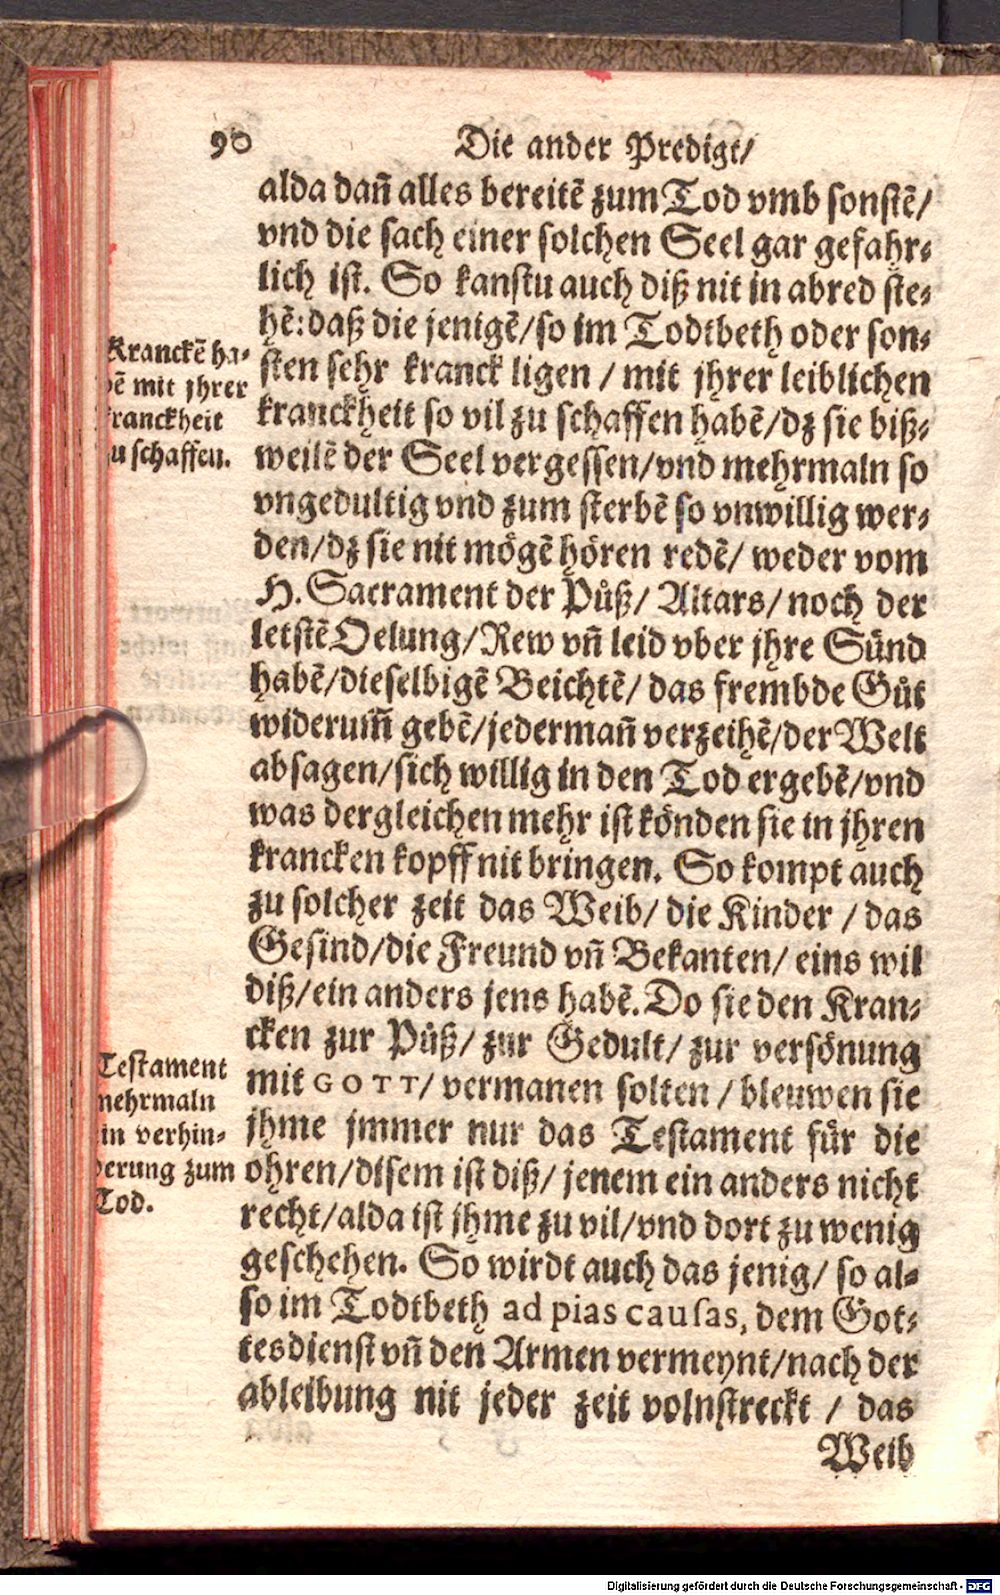 90 Die ander Predigt/
alda dañ alles bereitẽ zum Tod vmb sonstẽ/
vnd die sach einer solchen Seel gar gefahr-
lich ist. So kanstu auch diß nit in abred ste-
hẽ: daß die jenigẽ/so im Todtbeth oder son-
sten sehr kranck ligen / mit jhrer leiblichen
kranckheit so vil zu schaffen habẽ/dz sie biß-
weilẽ der Seel vergessen/vnd mehrmaln so
vngedultig vnd zum sterbẽ so vnwillig wer-
den/dz sie nit mögẽ hören redẽ/ weder vom
H. Sacrament der Půß/ Altars/ noch der
letstẽ Oelung/Rew vñ leid vber jhre Sünd
habẽ/dieselbigẽ Beichtẽ/ das frembde Gůt
widerum̃ gebẽ/jedermañ verzeihẽ/der Welt
absagen/sich willig in den Tod ergebẽ/vnd
was dergleichen mehr ist könden sie in jhren
krancken kopff nit bringen. So kompt auch
zu solcher zeit das Weib/ die Kinder / das
Gesind/die Freund vñ Bekanten/ eins wil
diß/ein anders jens habẽ. Do sie den Kran-
cken zur Půß/ zur Gedult/ zur versönung
mit GOTT/ vermanen solten / bleuwen sie
jhme jmmer nur das Testament für die
ohren/disem ist diß/ jenem ein anders nicht
recht/alda ist jhme zu vil/vnd dort zu wenig
geschehen. So wirdt auch das jenig/ so al-
so im Todtbeth ad pias causas, dem Got-
tesdienst vñ den Armen vermeynt/nach der
ableibung nit jeder zeit volnstreckt / das
Weib
Kranckẽ ha-
bẽ mit jhrer
kranckheit
zu schaffen.
Testament
mehrmaln
ein verhin-
derung zum
Tod.
Digitalisierung gefördert durch die Deutsche Forschungsgemeinschaft - DFG